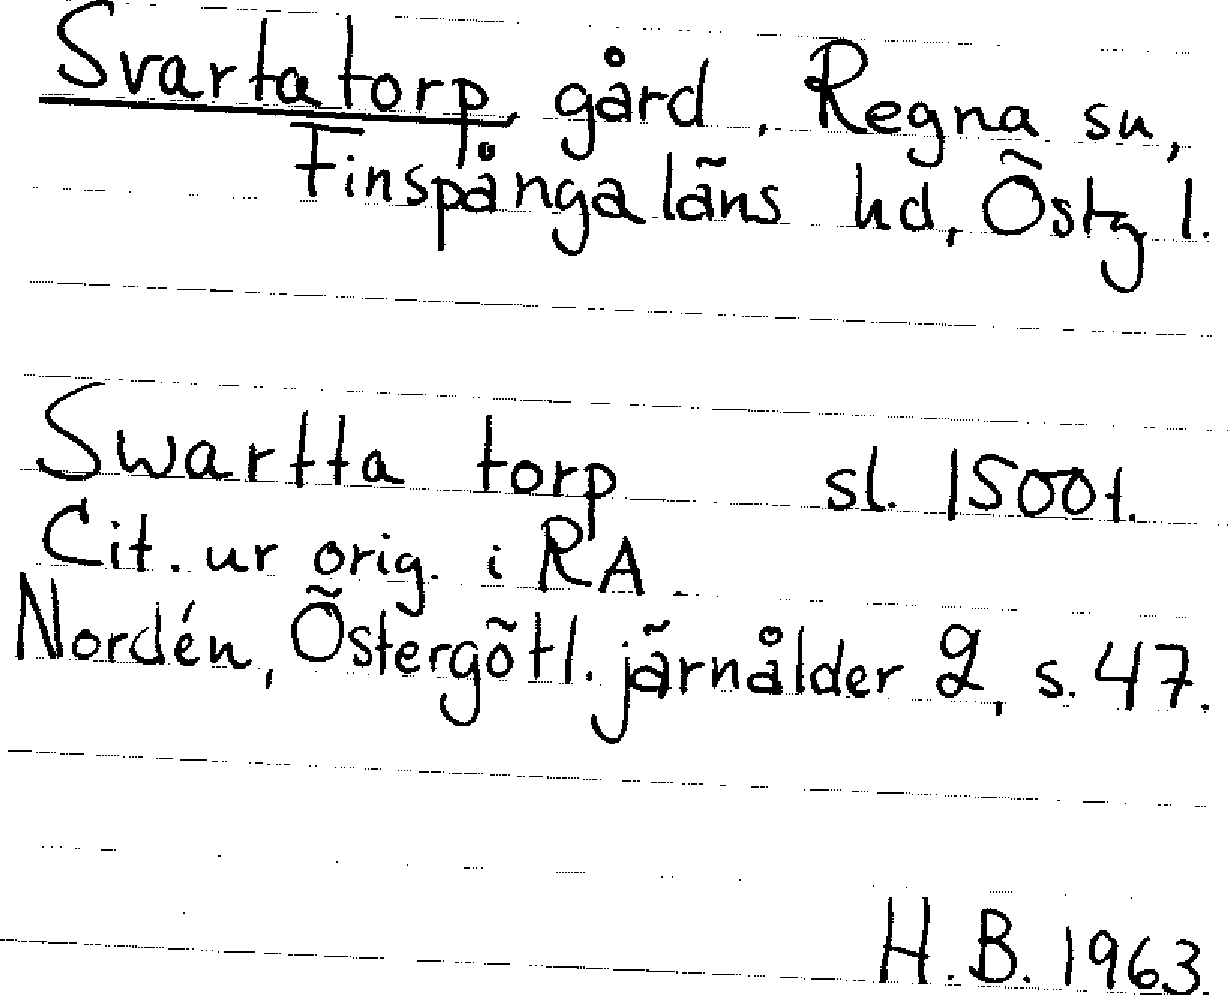 Svartatorp, gård, Regna sn,
Finspånga läns hd, Östg l.
Swartta torp sl. 1500t.
Cit. ur orig. i RA.
Nordén, Östergötl. järnålder 2, s. 47.
H.B. 1963.